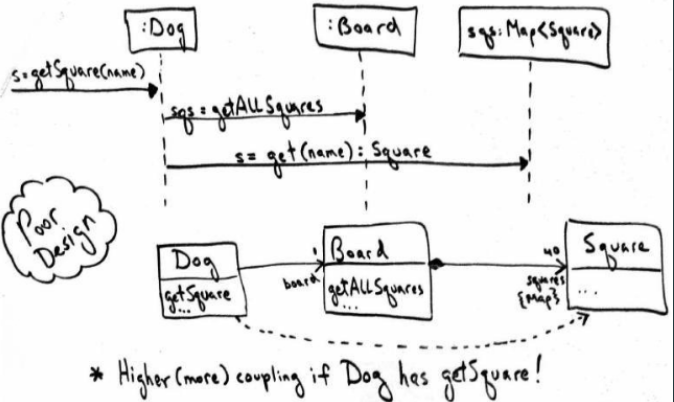 :Dog
:Board
sqs: Map<Square>
s=getSquare(name)
sqs = getAllSquares
s= get(name): Square
Poor
Design
Dog
getSquare
...
1
board
Board
getAllSquares
...
40
squares
{Map}
Square
...
* Higher (more) coupling if Dog has getSquare!